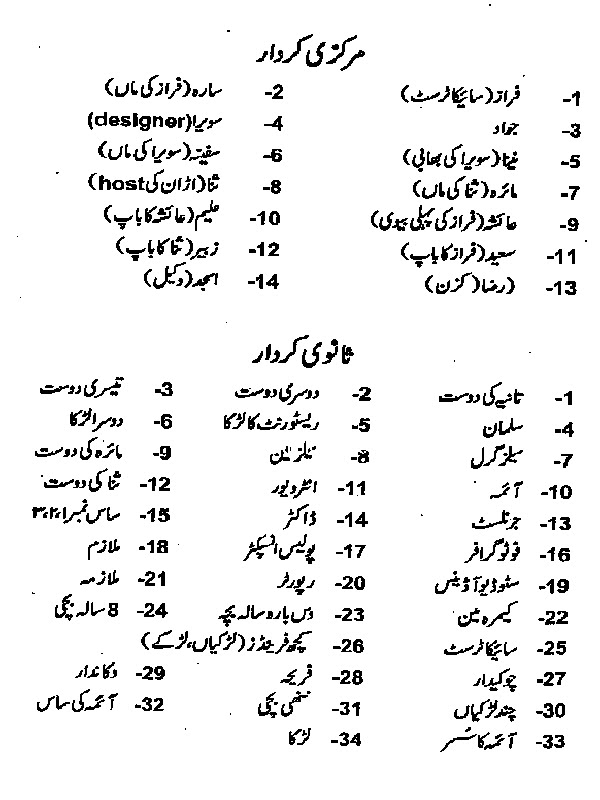 مرکزی کردار
1- فراز (سائیکاٹرسٹ) 2- سارہ (فراز کی ماں)
3- جواد 4- سویرا (designer)
5- نینا (سویرا کی بھابی) 6- سفینہ (سویرا کی ماں)
7- مائرہ (ثنا کی ماں) 8- ثنا (اڑان کی host)
9- عائشہ (فراز کی پہلی بیوی) 10- علیم (عائشہ کا باپ)
11- سعید (فراز کا باپ) 12- زبیر (ثنا کا باپ)
13- (رضا (کزن) 14- امجد (وکیل)
ثانوی کردار
1- تانیہ کی دوست 2- دوسری دوست 3- تیسری دوست
4- سلمان 5- ریسٹورنٹ کا لڑکا 6- دوسرا لڑکا
7- سیلز گرل 8- سیلز مین 9- مائرہ کی دوست
10- آئمہ 11- انٹرویور 12- ثنا کی دوست
13- جرنلسٹ 14- ڈاکٹر 15- ساس نمبر ۱،۲،۳
16- فوٹو گرافر 17- پولیس انسپکٹر 18- ملازم
19- سٹوڈیو آڈینس 20- رپورٹر 21- ملازمہ
22- کیمرہ مین 23- دس بارہ سالہ بچہ 24- 8 سالہ بچی
25- سائیکاٹرسٹ 26- کچھ فرینڈز (لڑکیاں، لڑکے)
27- چوکیدار 28- فریحہ 29- دکاندار
30- چند لڑکیاں 31- ننھی بچی 32- آئمہ کی ساس
33- آئمہ کا سسر 34- لڑکا